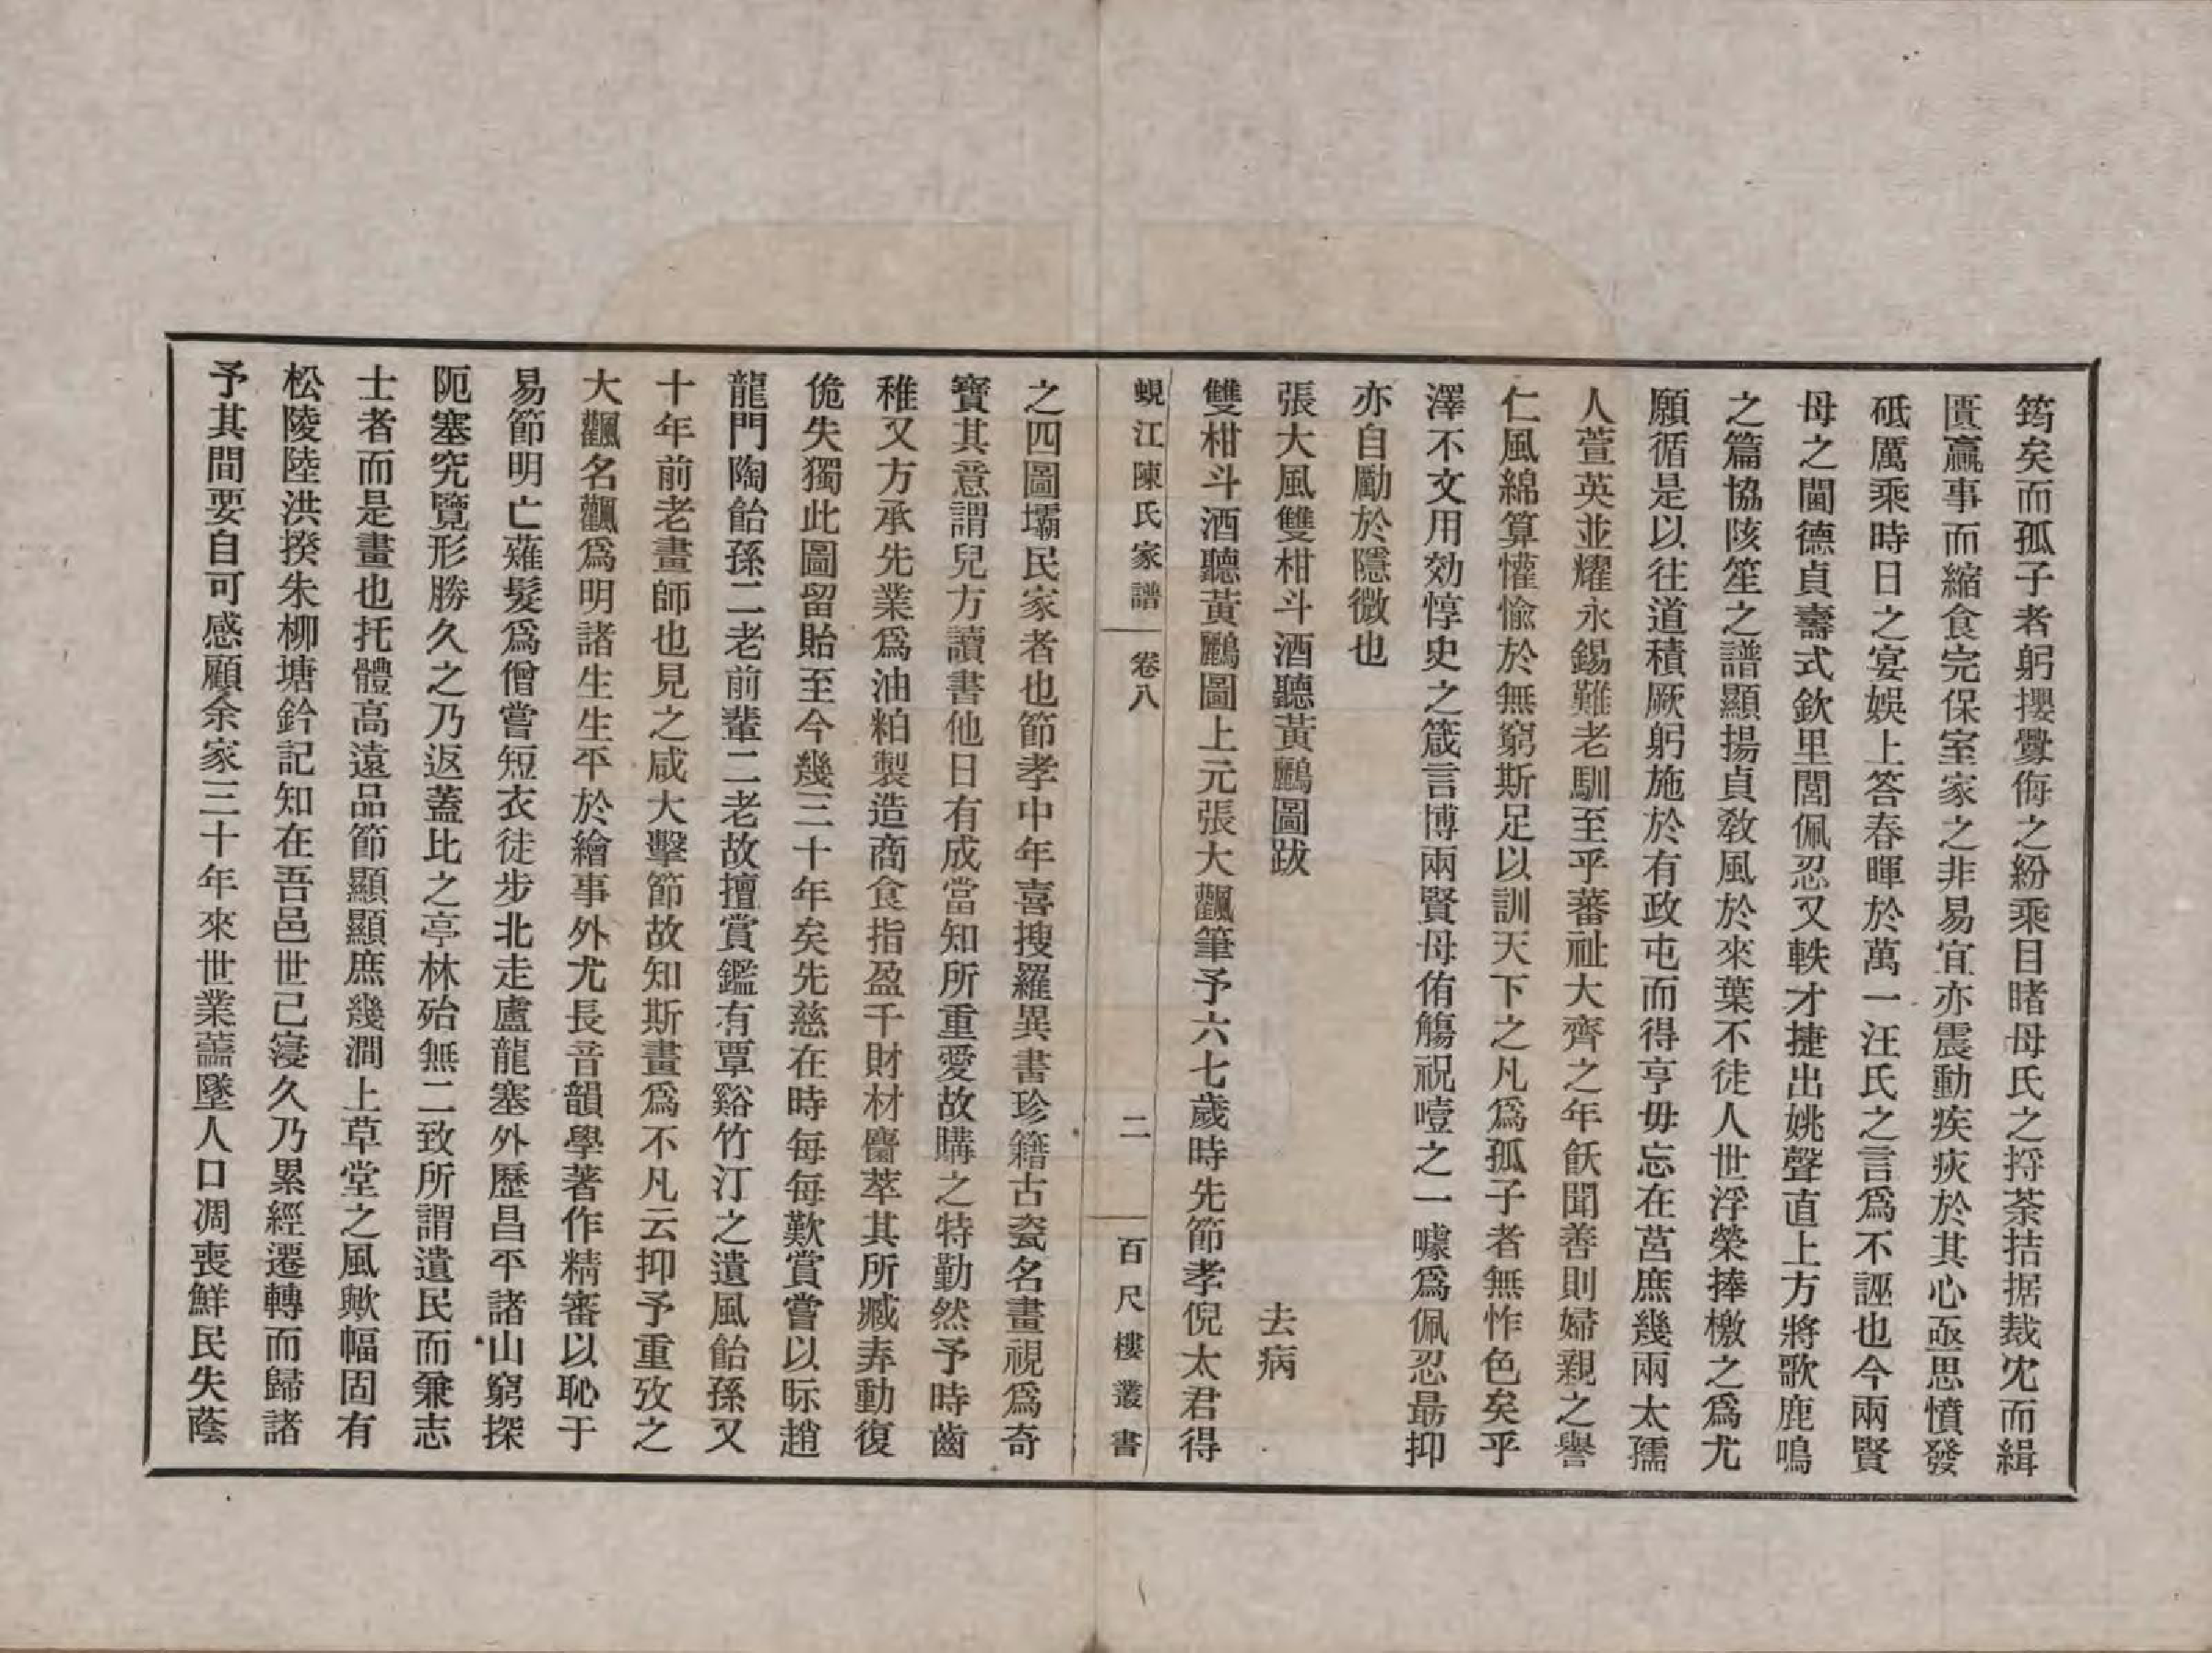 筠矣而孤子者躬攖釁侮之紛乘目睹母氏之捋荼拮据裁沈而緝
匱贏事而縮食完保室家之非易宜亦震動疾疢於其心亟思憤發
砥厲乘時日之宴娛上答春暉於萬一汪氏之言爲不誣也今兩賢
母之閫德貞壽式欽里閭佩忍又軼才捷出姚聲直上方將歌鹿鳴
之篇協陔笙之譜顯揚貞敎風於來葉不徒人世浮榮捧檄之爲尤
願循是以往道積厥躬施於有政屯而得亨毋忘在莒庶幾兩太孺
人萱英並耀永錫難老馴至乎蕃祉大齊之年飫聞善則婦親之譽
仁風綿算懽愉於無窮斯足以訓天下之凡爲孤子者無怍色矣乎
澤不文用効惇史之箴言博兩賢母侑觴祝噎之一噱爲佩忍最抑
亦自勵於隱微也
張大風雙柑斗酒聽黃鸝圖跋　　去病
雙柑斗酒聽黃鸝圖上元張大飌筆予六七歲時先節孝倪太君得
蜆江陳氏家譜　卷八　二　百尺樓叢書
之四圖壩民家者也節孝中年喜搜羅異書珍籍古瓷名畫視爲奇
寶其意謂兒方讀書他日有成當知所重愛故購之特勤然予時齒
稚又方承先業爲油粕製造商食指盈千財材麕萃其所臧弆動復
佹失獨此圖留貽至今幾三十年矣先慈在時每每歎賞嘗以眎趙
龍門陶飴孫二老前輩二老故擅賞鑑有覃谿竹汀之遺風飴孫又
十年前老畫師也見之咸大擊節故知斯畫爲不凡云抑予重攷之
大飌名飌爲明諸生生平於繪事外尤長音韻學著作精審以恥于
易節明亡薙髮爲僧嘗短衣徒步北走盧龍塞外歷昌平諸山窮探
阨塞究覽形勝久之乃返蓋比之亭林殆無二致所謂遺民而兼志
士者而是畫也托體高遠品節顯顯庶幾澗上草堂之風歟幅固有
松陵陸洪揆朱柳塘鈐記知在吾邑世已寖久乃累經遷轉而歸諸
予其間要自可感顧余家三十年來世業蘦墜人口凋喪鮮民失蔭